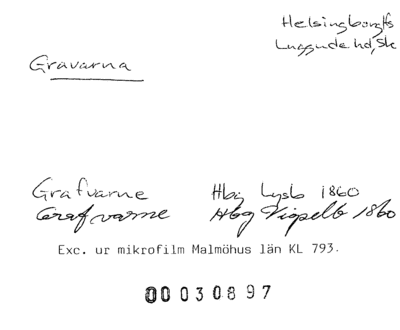 Helsingborg lfs
Luggude hd, Sk
Gravarna
Grafvarne Hbg Lysb 1860
Grafvarne Hbg Vigselb 1860
Exc. ur mikrofilm Malmöhus län KL 793.
0003089 7